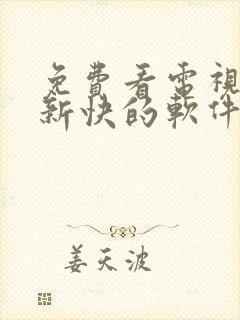 免費看電視
新快的軟件
姜天波